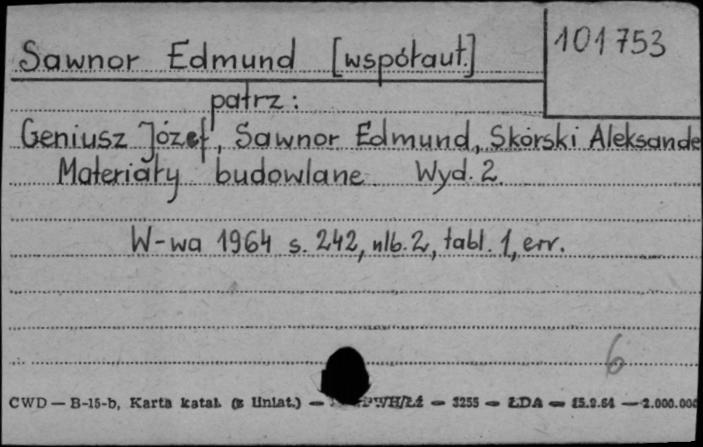 Sawnor Edmund [współaut.] 101753
patrz:
Geniusz Józef, Sawnor Edmund, Skórski Aleksande
Materiały budowlane Wyd. 2.
W-wa 1964 s. 242, nlb. 2, tabl. 1, err.
6
CWD — B-15-b, Karta katal. (z liniat.) — PWH/Łź — 3255 — ŁDA — 15.9.64 — 2.000.000